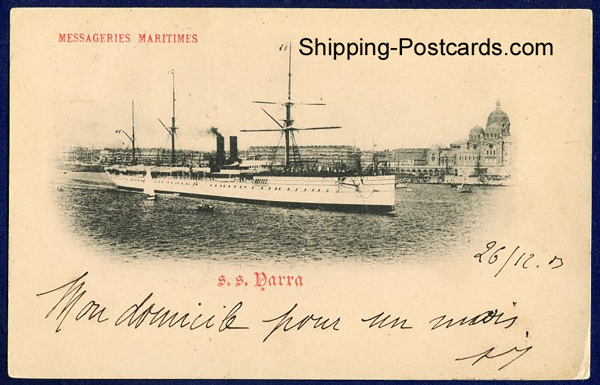 MESSAGERIES MARITIMES
Shipping-Postcards.com
s. s. Yarra
26/12. 03
Mon domicile pour un mois.